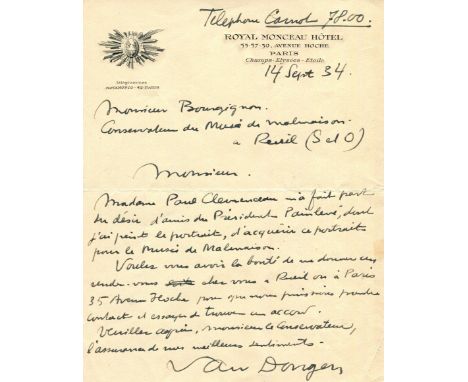 Téléphone Carnot 78.00.
ROYAL MONCEAU HÔTEL
35-37-39, AVENUE HOCHE
PARIS
Champs-Elysées-Etoile
Télégrammes
14 Sept 34.
Monsieur Bourgignon.
Conservateur du Musée de malmaison.
a Rueil (S et O)
Monsieur.
Madame Paul Clemenceau m'a fait part
du désir d'amis du Président Painlevé, dont
j'ai peint le portrait, d'acquérir ce portrait
pour le Musée de Malmaison.
Voulez vous avoir la bonté de me donner un
rendez-vous chez vous a Rueil ou à Paris
35 Avenue Hoche pour que nous puissions prendre
contact et essayer de trouver un accord.
Veuillez agréer, monsieur le Conservateur,
l'assurance de mes meilleurs sentiments.
Van Dongen